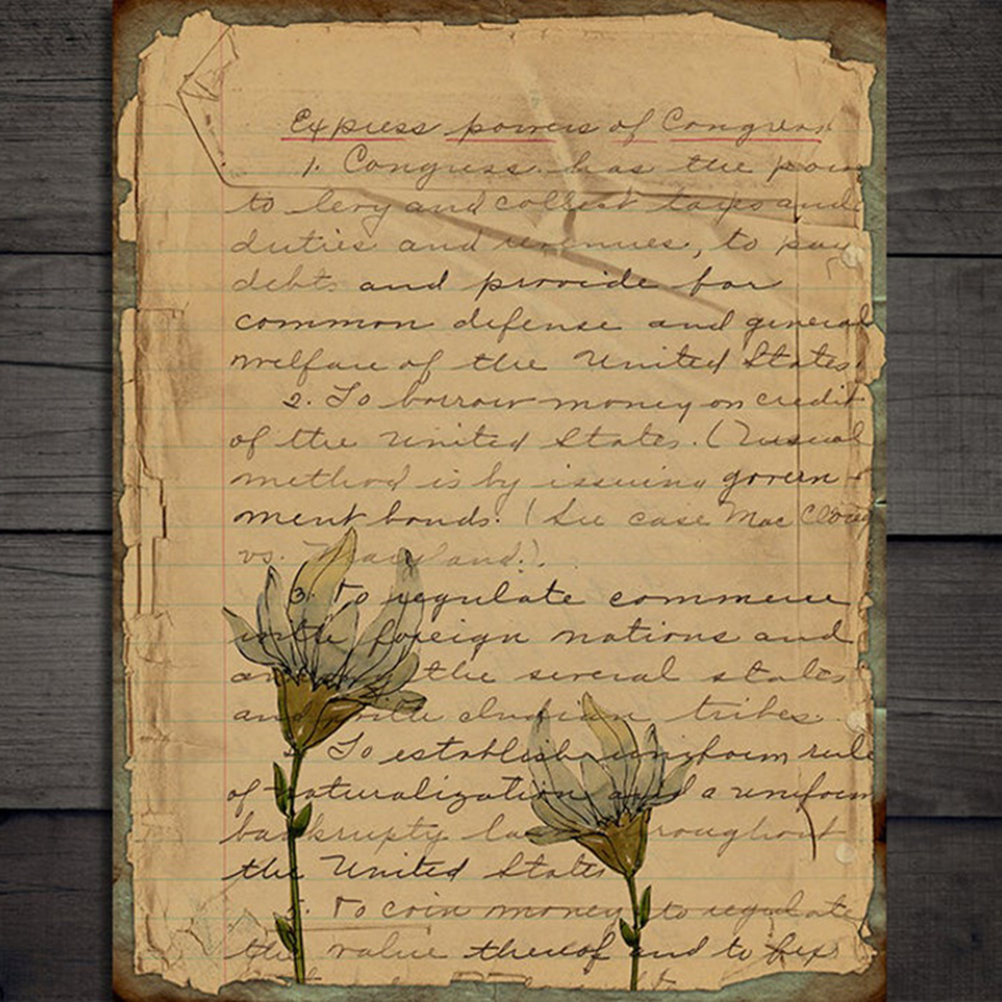 Express powers of Congress
1. Congress has the pow
to levy and collect taxes and
duties and revenues, to pay
debts and provide for
common defense and general
welfare of the United States.
2. To borrow money on credit
of the United States. (Usual
method is by issuing govern-
ment bonds. (See case Mac
vs. Maryland.).
3. To regulate commerce
with foreign nations and
among the several states
and with Indian tribes.
4. To establish uniform rule
of naturalization and a uniform
bankrupty law throughout
the United States
5. To coin money to regulate
the value thereof and to fix